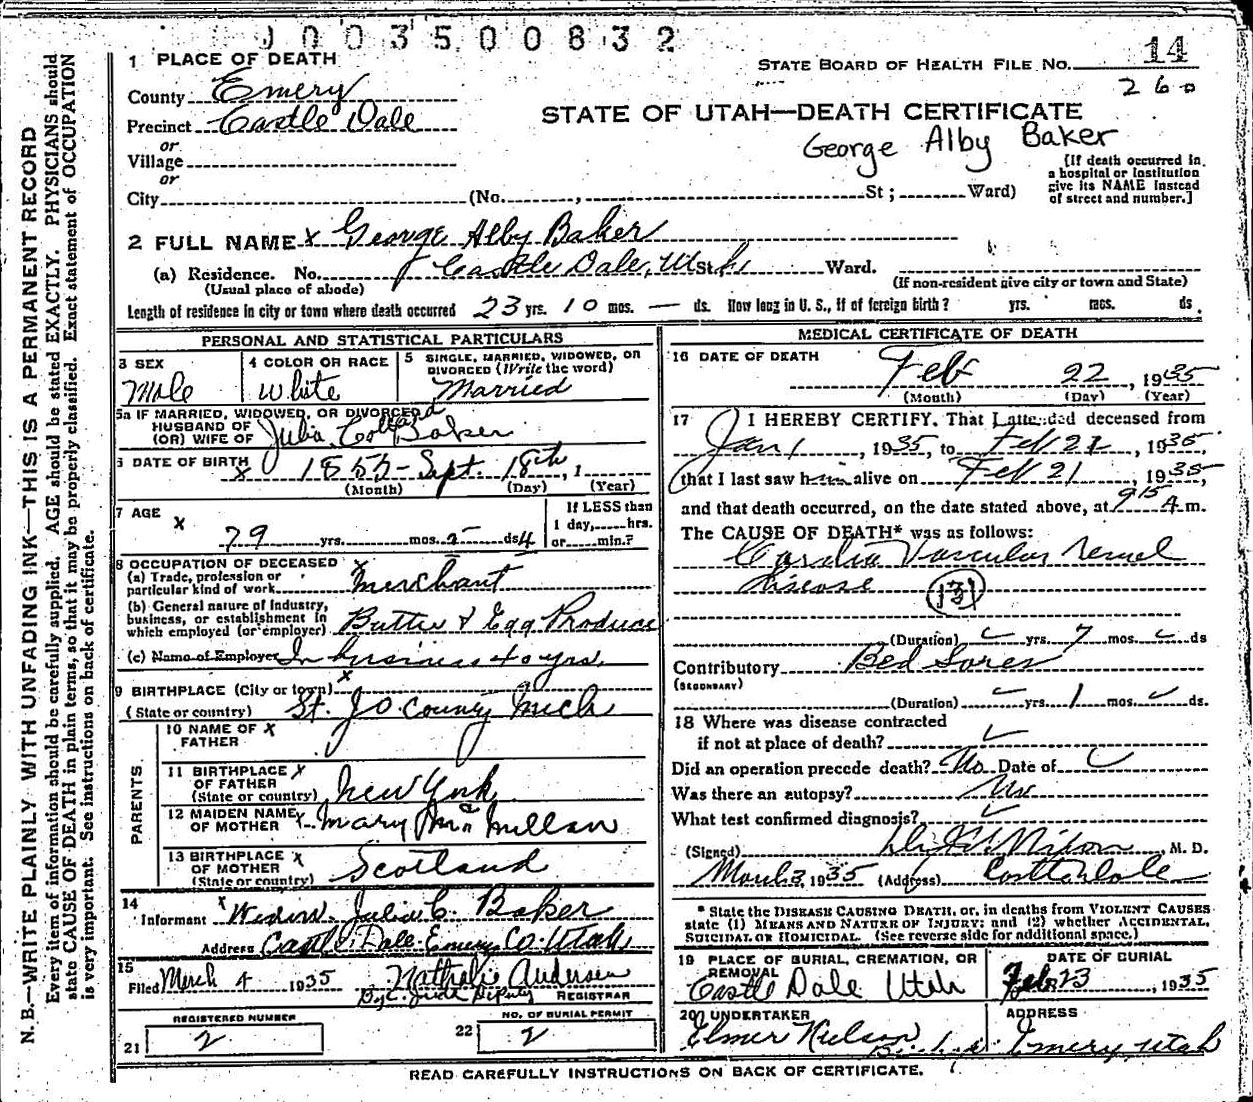 0003500832
14
1 PLACE OF DEATH
STATE BOARD OF HEALTH FILE NO.
260
County Emery
STATE OF UTAH—DEATH CERTIFICATE
Precinct Castle Dale
George Alby Baker
or
Village
or
City (No. , St ; Ward)
[If death occurred in
a hospital or institution
give its NAME instead
of street and number.]
2 FULL NAME x George Alby Baker
(a) Residence. No. Castle Dale, Utah St. Ward.
(Usual place of abode)
(If non-resident give city or town and State)
Length of residence in city or town where death occurred 23 yrs. 10 mos. — ds. How long in U. S., if of foreign birth? yrs. mos. ds.
PERSONAL AND STATISTICAL PARTICULARS
3 SEX
Male
4 COLOR OR RACE
White
5 SINGLE, MARRIED, WIDOWED, OR
DIVORCED (Write the word)
Married
5a IF MARRIED, WIDOWED, OR DIVORCED
HUSBAND OF
(OR) WIFE OF Julia Baker
6 DATE OF BIRTH x 1855 - Sept. 18th, 1
(Month) (Day) (Year)
7 AGE
x
79 yrs. mos. 5 ds 4
If LESS than
1 day, hrs.
or min.?
8 OCCUPATION OF DECEASED x
(a) Trade, profession or
particular kind of work Merchant
(b) General nature of Industry,
business, or establishment in
which employed (or employer) Butter & Egg Produce
(c) Name of Employer In business 40 yrs.
9 BIRTHPLACE (City or town) x
(State or country) St. Jo County Mich
PARENTS
10 NAME OF x
FATHER
11 BIRTHPLACE x
OF FATHER
(State or country) New York
12 MAIDEN NAME
OF MOTHER x Mary McMillan
13 BIRTHPLACE x
OF MOTHER
(State or country) Scotland
14
Informant x Widow. Julia C. Baker
Address Castle Dale Emery Co. Utah
15
Filed March 4 1935 Nathalie Andersen
Deputy REGISTRAR
REGISTERED NUMBER
21 2
NO. OF BURIAL PERMIT
22 2
MEDICAL CERTIFICATE OF DEATH
16 DATE OF DEATH
Feb 22, 1935
(Month) (Day) (Year)
17 I HEREBY CERTIFY, That I attended deceased from
Jan 1, 1935, to Feb 21, 1935,
that I last saw h alive on Feb 21, 1935,
and that death occurred, on the date stated above, at 9 15 A m.
The CAUSE OF DEATH* was as follows:
Cardio Vascular renal
disease (131)
(Duration) yrs. 7 mos. ds
Contributory Bed Sores
(SECONDARY)
(Duration) yrs. 1 mos. ds.
18 Where was disease contracted
if not at place of death?
Did an operation precede death? No Date of
Was there an autopsy? No
What test confirmed diagnosis?
(Signed) Nixon, M. D.
March 3, 1935 (Address) Castle Dale
* State the DISEASE CAUSING DEATH, or, in deaths from VIOLENT CAUSES
state (1) MEANS AND NATURE OF INJURY; and (2) whether ACCIDENTAL,
SUICIDAL OR HOMICIDAL. (See reverse side for additional space.)
19 PLACE OF BURIAL, CREMATION, OR
REMOVAL
Castle Dale Utah
DATE OF BURIAL
Feb 23, 1935
20 UNDERTAKER
Elmer Nielson
ADDRESS
Emery, Utah
READ CAREFULLY INSTRUCTIONS ON BACK OF CERTIFICATE.
N. B.—WRITE PLAINLY WITH UNFADING INK—THIS IS A PERMANENT RECORD
Every item of information should be carefully supplied. AGE should be stated EXACTLY. PHYSICIANS should
state CAUSE OF DEATH in plain terms, so that it may be properly classified. Exact statement of OCCUPATION
is very important. See instructions on back of certificate.